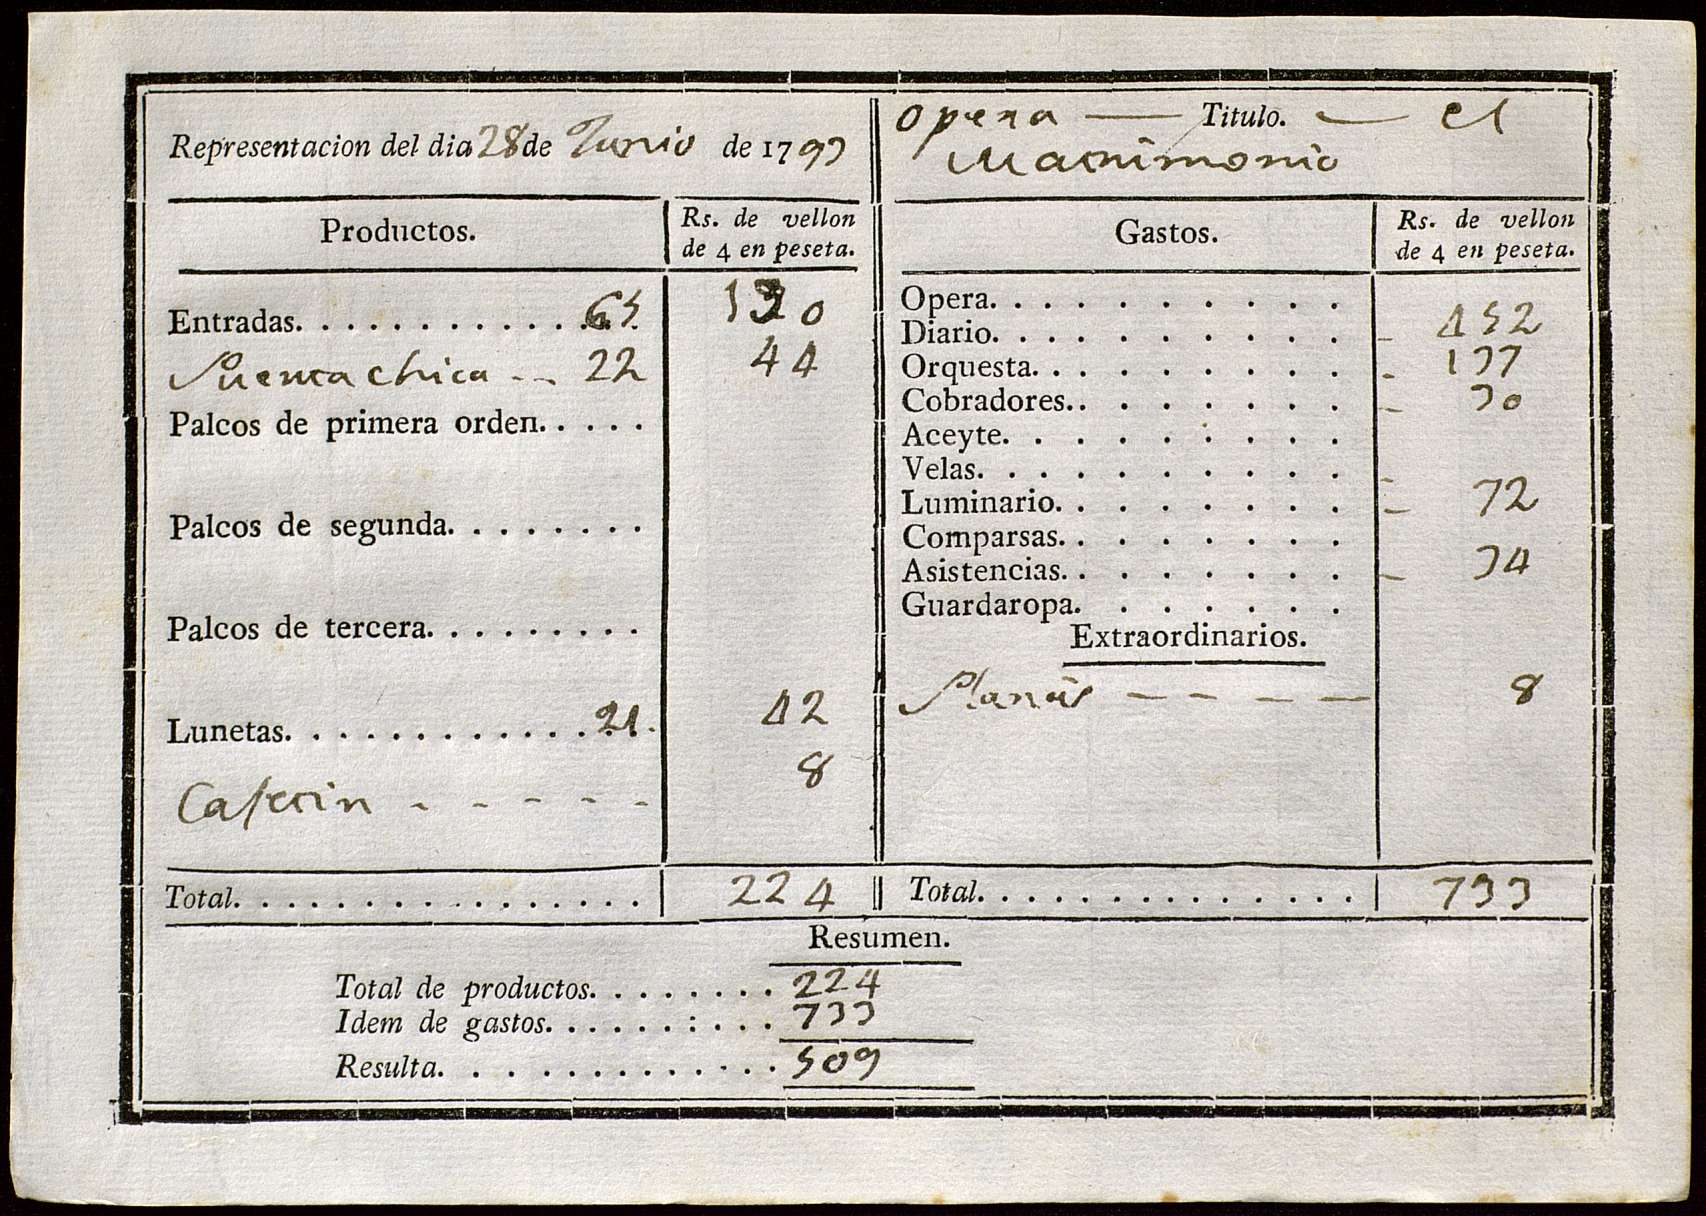 Representacion del dia 28 de Junio de 1793
Opera — Titulo. — el
Matrimonio
Productos.
Rs. de vellon
de 4 en peseta.
Entradas. . . . . . . . . . . . 65 130
Puerta chica - - 22 44
Palcos de primera orden. . . . .
Palcos de segunda. . . . . . . .
Palcos de tercera. . . . . . . . .
Lunetas. . . . . . . . . . . . . 21. 42
Cafetin - - - - - 8
Total. . . . . . . . . . . . . . . . 224
Gastos.
Rs. de vellon
de 4 en peseta.
Opera. . . . . . . . . .
Diario. . . . . . . . . . - 452
Orquesta. . . . . . . . . - 137
Cobradores. . . . . . . . - 30
Aceyte. . . . . . . . . .
Velas. . . . . . . . . . -
Luminario. . . . . . . . - 72
Comparsas. . . . . . . .
Asistencias. . . . . . . . - 34
Guardaropa. . . . . . .
Extraordinarios.
— — — — 8
Total. . . . . . . . . . . . . . . 733
Resumen.
Total de productos. . . . . . . . 224
Idem de gastos. . . . . . : . . . 733
Resulta. . . . . . . . . . . . . 509